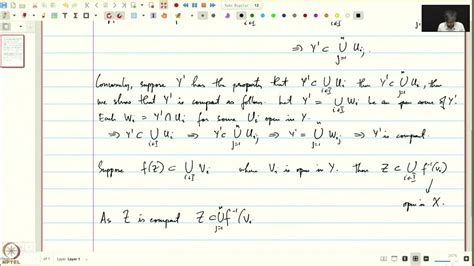 ⇒ Y' ⊂ ⋃_{j=1}^{n} U_{i_j}
Conversely, suppose Y' has the property that Y' ⊂ ⋃_{i∈I} U_i then Y' ⊂ ⋃_{j=1}^{n} U_i, then
we show that Y' is compact as follows. Let Y' = ⋃_{i∈I} W_i be an open cover of Y'.
Each W_i = Y' ∩ U_i for some U_i open in Y.
⇒ Y' ⊂ ⋃_{i∈I} U_i ⇒ Y' ⊂ ⋃_{j=1}^{n} U_{i_j} ⇒ Y' = ⋃_{j=1}^{n} W_{i_j} ⇒ Y' is compact.
Suppose f(Z) ⊂ ⋃_{i∈I} V_i where V_i is open in Y. Then Z ⊂ ⋃_{i∈I} f^{-1}(V_i)
↓
open in X.
As Z is compact Z ⊂ ⋃_{j=1}^{n} f^{-1}(V_i
NPTEL